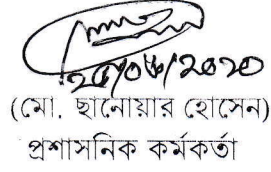 ২৫/০৬/২০২০
(মো. ছানোয়ার হোসেন)
প্রশাসনিক কর্মকর্তা